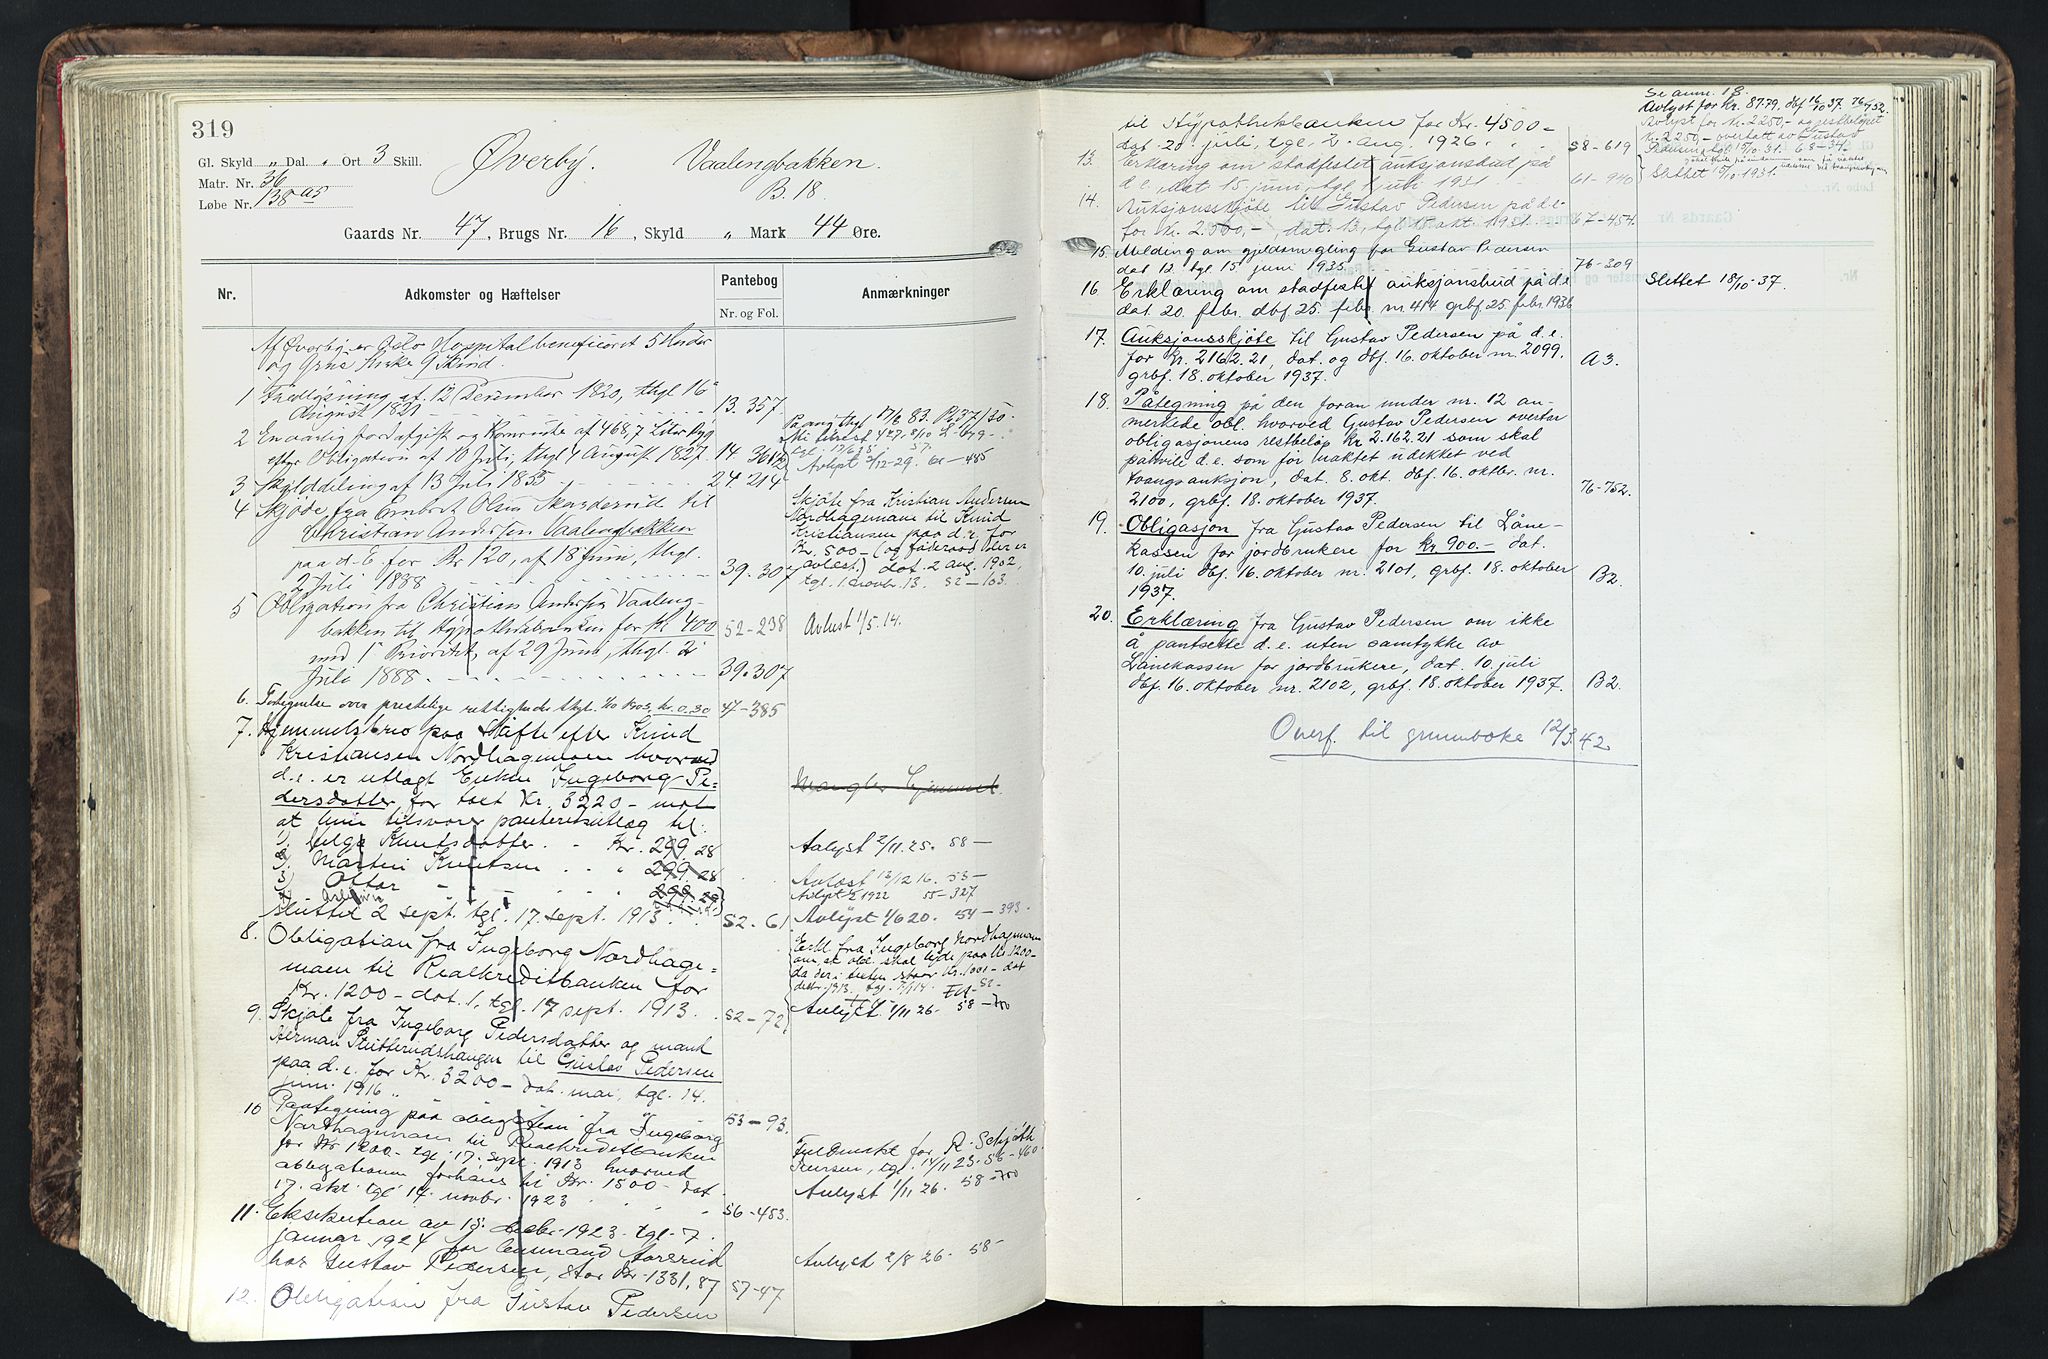 319
Gl. Skyld „ Dal. „ Ort 3 Skill.
Matr. Nr. 36
Løbe Nr. 138 a5
Øverby. Vaalengbakken.
B. 18
Gaards Nr. 47, Brugs Nr. 16, Skyld „ Mark 44 Øre.
Nr. Adkomster og Hæftelser Pantebog Anmærkninger
Nr. og Fol.
Af Øverby er Oslo Hospital beneficeret 5 Huder
og Grue Kirke 9 Skind.
1 Fredløsning af 12 December 1820, thgl 16
August 1821 13. 357
2 En aarlig Jordafgift og Kornruke af 468,7 Liter Byg
efter Obligation af 10 Juli, thgl 1 August 1827 14. 361
3 Skylddeling af 13 Juli 1855 24. 214
Avlyst 3/12-29. 61-485
4 Skjøde fra Embret Olsen Skarderud til
Christian Andersen Vaalengbakken
paa d. E. for Kr 120, af 18 Juni, thgl.
2 Juli 1888 39. 307
Skjøte fra Kristian Andersen
Nordhagemaen til Knud
Kristiansen paa d. e. for
Kr. 500 - (og føderaad der er
avlest.) dat. 2 aug. 1902,
tgl. 1. novbr. 13. 52-103.
5 Obligation fra Christian Andersen Vaaleng-
bakken til Hypothekbanken for Kr 400 52-238 Avlyst 1/5. 14.
med 1 Prioritet, af 29 Juni, thgl. 2
Juli 1888. 39. 307
6. Fortegnelse over prestelige rettigheder thgl. 1903, kr. 0,30 47-385
7. Hjemmelsbrev paa Skifte efter Knud
Kristiansen Nordhagemoen hvorved
d.e. er utlagt Enken Ingeborg Pe-
dersdatter for taxt Kr. 3220 - mot
at hun tilsvarer panteretsutlæg til:
Mangler hjemmel.
1) Helga Knutsdatter. Kr. 299.28 Avlyst 2/11.25. 58 -
2) Martin Knutsen „ 299.28
3) Ottar „ 299.28 Avlæst 12/12 16. 53 -
Avlyst 1922 55-327
sluttet 2 sept. tgl. 17. sept. 1913. 52-61 Avlyst 1/6 20. 54-393.
8. Obligation fra Ingeborg Nordhage-
maen til Realkreditbanken for
Kr. 1200 - dat. 1, tgl. 17 sept. 1913. 52-72
Erkl. fra Ingeborg Nordhagemaen
om, at obl. skal lyde paa Kr. 1200 -
da der i teksten staar Kr. 1001 - dat
Avlyst 1/11 26. 58-700
9. Skjøte fra Ingeborg Pedersdatter og mand
Herman Slutterudshaugen til Gustav Pedersen
paa d. e. for Kr. 3200 - dat. mai, tgl. 14.
juni 1916 53-93.
10 Paategning paa obligation fra Ingeborg
Narthagemaen til Realkreditbanken
for Kr 1200 - tgl. 17. sept. 1913 hvorved
obligationen forhøies til Kr. 1500 - dat
17. okt. tgl 14. novbr. 1923 56-453.
Fuldmakt for R. Schjøth
Iversen, tgl. 14/11 23. 56-460
Avlyst 1/11 26. 58-700
11. Eksekution av 15. decbr. 1923 tgl. 7.
januar 1924 for Amund Aaserud
hos Gustav Pedersen, stor Kr. 1331,87 57-47
Avlyst 2/8 26. 58 -
12. Obligation fra Gustav Pedersen
til Hypothekbanken for Kr. 4500 -
dat. 20. juli, tgl. 2. aug. 1926. 58-619
Se anm. 18.
Avlyst for kr. 87.79, dbf 16/10 37. 76/752.
Avlyst for Kr. 2250,- og restbeløpet
Kr. 2250,- overtatt av Gustav
Pedersen tgl 15/10. 31. 63-34.
13. Erklæring om stadfestet auksjonsbud på
d. e., dat 15. juni, tgl 1 juli 1931. 61-940
Slettet 19/10. 1931.
14. Auksjonsskjøte til Gustav Pedersen på d.e
for kr. 2500,-, dat. 13, tgl 15. okt. 1931. 67-454
15. Melding om gjeldsmegling for Gustav Pedersen
dat. 12 tgl. 15 juni 1935. 76-309
16. Erklæring om stadfestet auksjonsbud på d.e
dat. 20. febr. dbf 25. febr. nr 414 grbf. 25 febr. 1936
Slettet 18/10-37.
17. Auksjonsskjøte til Gustav Pedersen på d. e.
for kr. 2162.21, dat. og dbf. 16. oktober nr. 2099.
grbf. 18. oktober 1937. A 3.
18. Påtegning på den foran under nr. 12 an-
merkede obl. hvorved Gustav Pedersen overtar
obligasjonens restbeløp kr 2.162.21 som skal
påhvile d. e. som før uaktet udekket ved
tvangsauksjon, dat. 8. okt. dbf. 16. oktbr. nr.
2100, grbf. 18. oktober 1937. 76-752.
19. Obligasjon fra Gustav Pedersen til Låne-
kassen for jordbrukere for kr. 900.- dat.
10. juli dbf. 16. oktober nr. 2101, grbf. 18. oktober
1937. B2.
20. Erklæring fra Gustav Pedersen om ikke
å pantsette d. e. uten samtykke av
Lånekassen for jordbrukere, dat. 10. juli
dbf. 16. oktober nr. 2102, grbf. 18. oktober 1937. B2.
Overf. til grunnboke 12/3. 42.